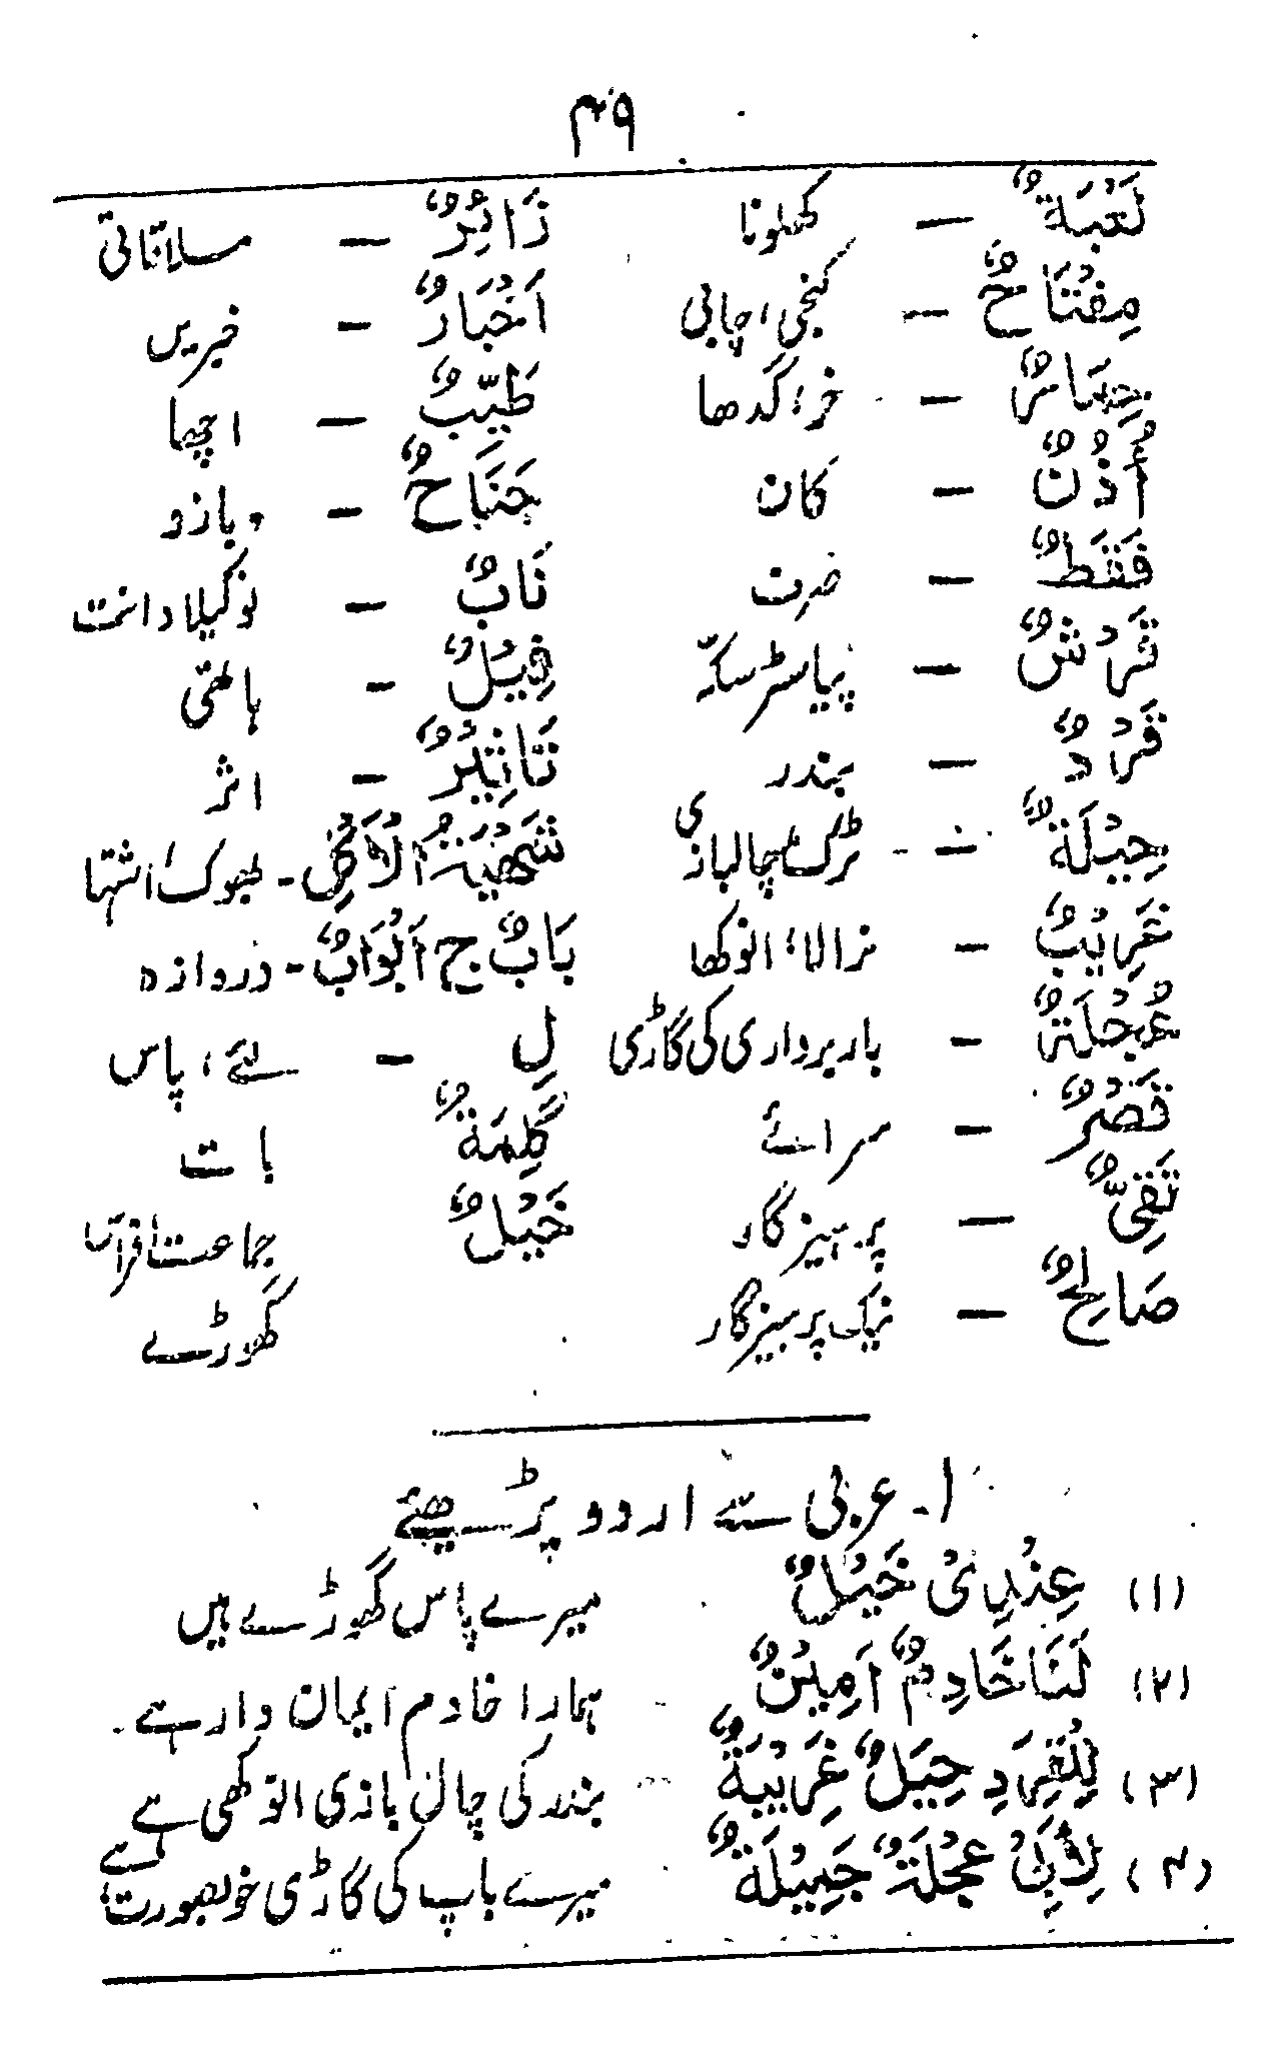 ۴۹
لَعْبَةٌ — کھلونا زَائِرٌ — ملاقاتی
مِفْتَاحٌ — کنجی، چابی اَخْبَارٌ — خبریں
حِمَارٌ — خر، گدھا طَیِّبٌ — اچھا
أُذُنٌ — کان جَنَاحٌ — بازو
فَقَطْ — صرف نَابٌ — نوکیلا دانت
قَرْشٌ — پیاسٹر سکہّ فِیْلٌ — ہاتھی
قَرْدٌ — بندر تَاثِیْرٌ — اثر
حِیْلَةٌ — ٹرک، چالبازی شَهْیَةُ الْاَکْلِ - بھوک، اشتہا
غَرِیْبٌ — نرالا، انوکھا بَابٌ ج اَبْوَابٌ - دروازہ
عُجْلَةٌ — باربرداری کی گاڑی لِ — لئے، پاس
قَصْرٌ — سرائے کَلِمَةٌ بات
تَقِیٌّ — پرہیزگار خَیْلٌ جماعت افراس
صَالِحٌ — نیک پرہیزگار گھوڑے
۱- عربی سے اردو پڑھیئے
(۱) عِنْدِیْ خَیْلٌ میرے پاس گھوڑے ہیں
(۲) لَنَا خَادِمٌ اَمِیْنٌ ہمارا خادم ایمان دار ہے۔
(۳) لِلْقِرَدِ حِیَلٌ غَرِیْبَةٌ بندر کی چال بازی انوکھی ہے
(۴) لِأَبِیْ عَجْلَةٌ جَمِیْلَةٌ میرے باپ کی گاڑی خوبصورت ہے